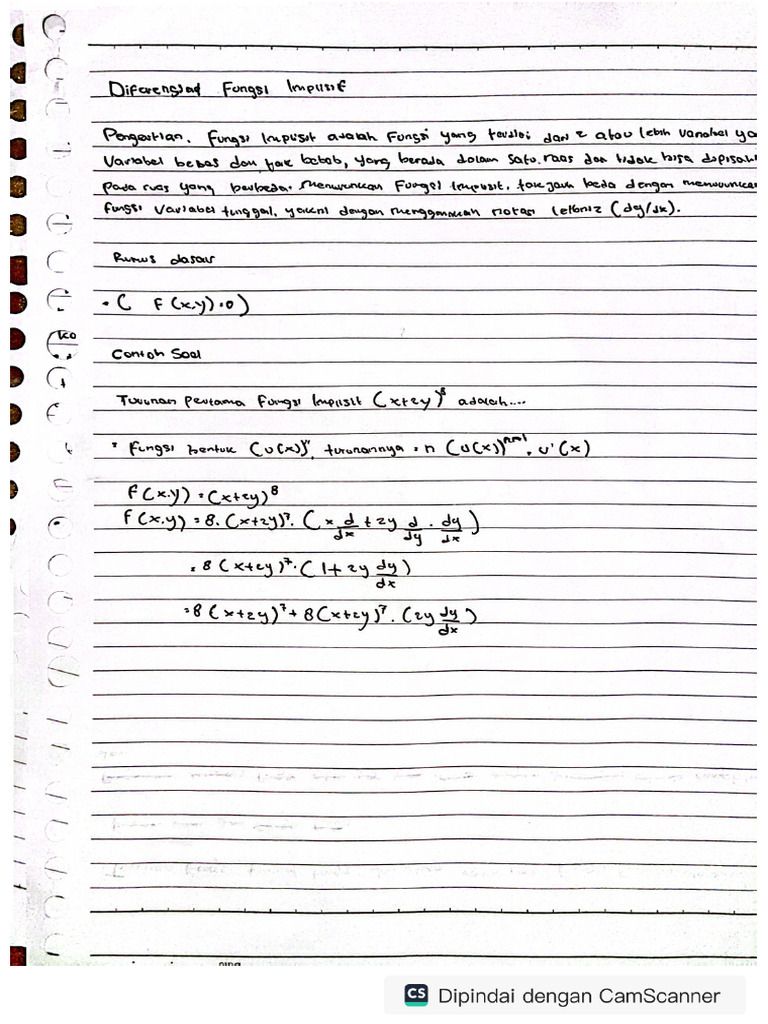 Diferensial Fungsi Implisit
Pengertian. Fungsi Implisit adalah Fungsi yang terdiri dari 2 atau lebih variabel ya
Variabel bebas dan tak bebas, yang berada dalam satu ruas dan tidak bisa dipisah
pada ruas yang berbeda. Menurunkan Fungsi Implisit, tak jauh beda dengan menurunkan
fungsi Variabel tunggal, yakni dengan menggunakan notasi leibniz (dy/dx).
Rumus dasar
• ( F(x,y)=0)
Contoh Soal
Turunan Pertama Fungsi Implisit (x+2y)⁸ adalah....
• Fungsi bentuk (u(x))ⁿ, turunannya = n (u(x))ⁿ⁻¹. u'(x)
F(x.y) = (x+2y)⁸
F(x.y) = 8. (x+2y)⁷. (x d/dx + 2y d/dy . dy/dx)
= 8 (x+2y)⁷. (1+2y dy/dx)
= 8 (x+2y)⁷ + 8(x+2y)⁷. (2y dy/dx)
CS Dipindai dengan CamScanner